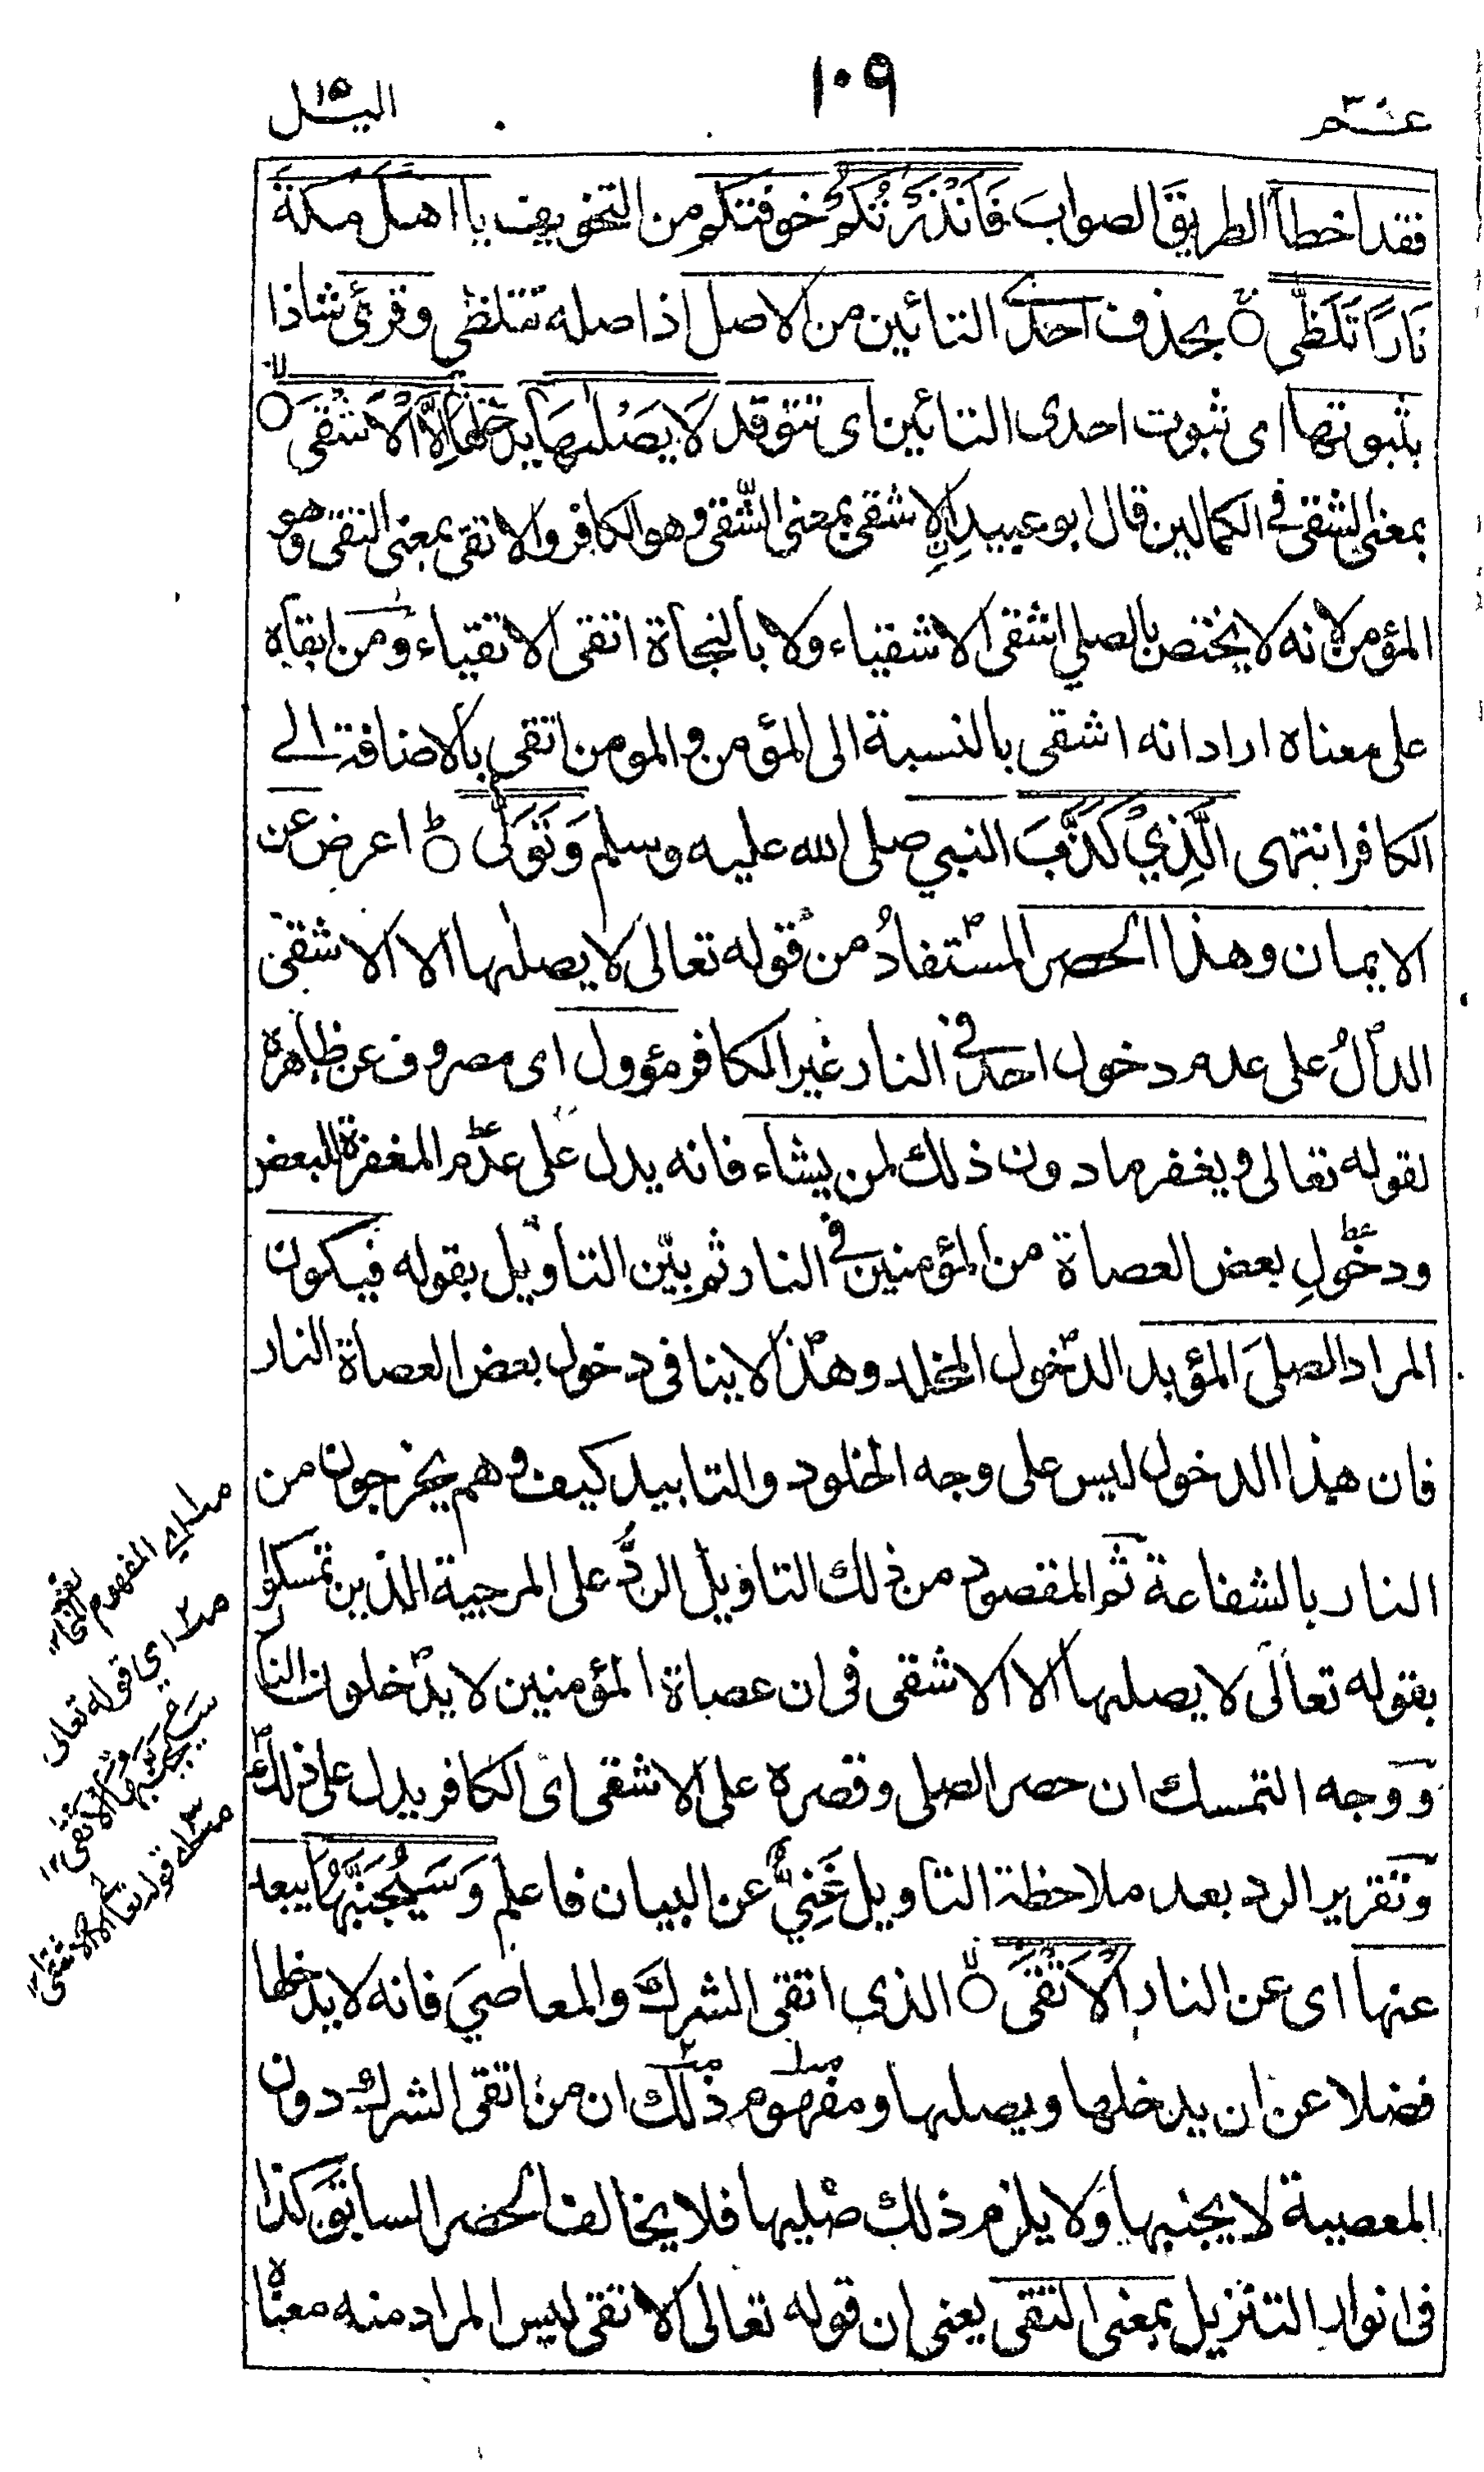 عــــم
١٠٩
اليـــل
فقد اخطأ الطريق الصواب فَاَنْذَرْتُكُمْ خوفتكم من التخويف يا اهل مكة
نَارًا تَلَظّٰى بحذف احدى التائين من الاصل اذ اصله تتلظى وقرئ شاذا
بثبوتها اى ثبوت احدى التائين اى تتوقد لَا يَصْلٰىهَا يدخلها اِلَّا الْاَشْقَى
بمعنى الشقى فى الكمالين قال ابو عبيد الاشقى بمعنى الشقى وهو الكافر والاتقى بمعنى التقى وهو
المؤمن لانه لا يختص بالصلى اشقى الاشقياء ولا بالنجاة اتقى الاتقياء ومن ابقاه
على معناه اراد انه اشقى بالنسبة الى المؤمن والمومن اتقى بالاضافة الے
الكافر انتهى الَّذِيْ كَذَّبَ النبي صلى الله عليه وسلم وَتَوَلّٰى ط اعرض عن
الايمان وهذا الحصر المستفادُ من قوله تعالى لا يصلىها الا الاشقى
الدالُ على عدم دخول احد فى النار غير الكافر مؤول اى مصروف عن ظاهره
لقوله تعالى ويغفر ما دون ذلك لمن يشاء فانه يدل على عدم المغفرة للبعض
ودخولِ بعض العصاة من المؤمنين فى النار ثم بيّن التاويل بقوله فيكون
المراد الصلىَ المؤبد الدخول المخلد وهذا لا ينافى دخول بعض العصاة النار
فان هذا الدخول ليس على وجه الخلود والتابيد كيف وهم يخرجون من
النار بالشفاعة ثم المقصود من ذلك التاويل الردُّ على المرجية الذين تمسكوا
بقوله تعالى لا يصلىها الا الاشقى فى ان عصاة المؤمنين لا يدخلون النار
ووجه التمسك ان حصر الصلى وقصره على الاشقى اى الكافر يدل على ذلك
وتقرير الرد بعد ملاحظة التاويل غَنِيٌّ عن البيان فاعلم وَسَيُجَنَّبُهَا يبعد
عنها اى عن النار الْاَتْقَى الذى اتقى الشرك والمعاصي فانه لا يدخلها
فضلا عن ان يدخلها ويصلىها ومفهوم ذلك ان من اتقى الشرك دون
المعصية لا يجنبها ولا يلزم ذلك صليها فلا يخالف الحصر السابق كذا
فى انوار التنزيل بمعنى التقى يعنى ان قوله تعالى الاتقى ليس المراد منه معناه
اي المفهوم
اي قوله تعالى
سيجنبها الاتقى ١٢
قوله تعالى الا الاشقى ١٢